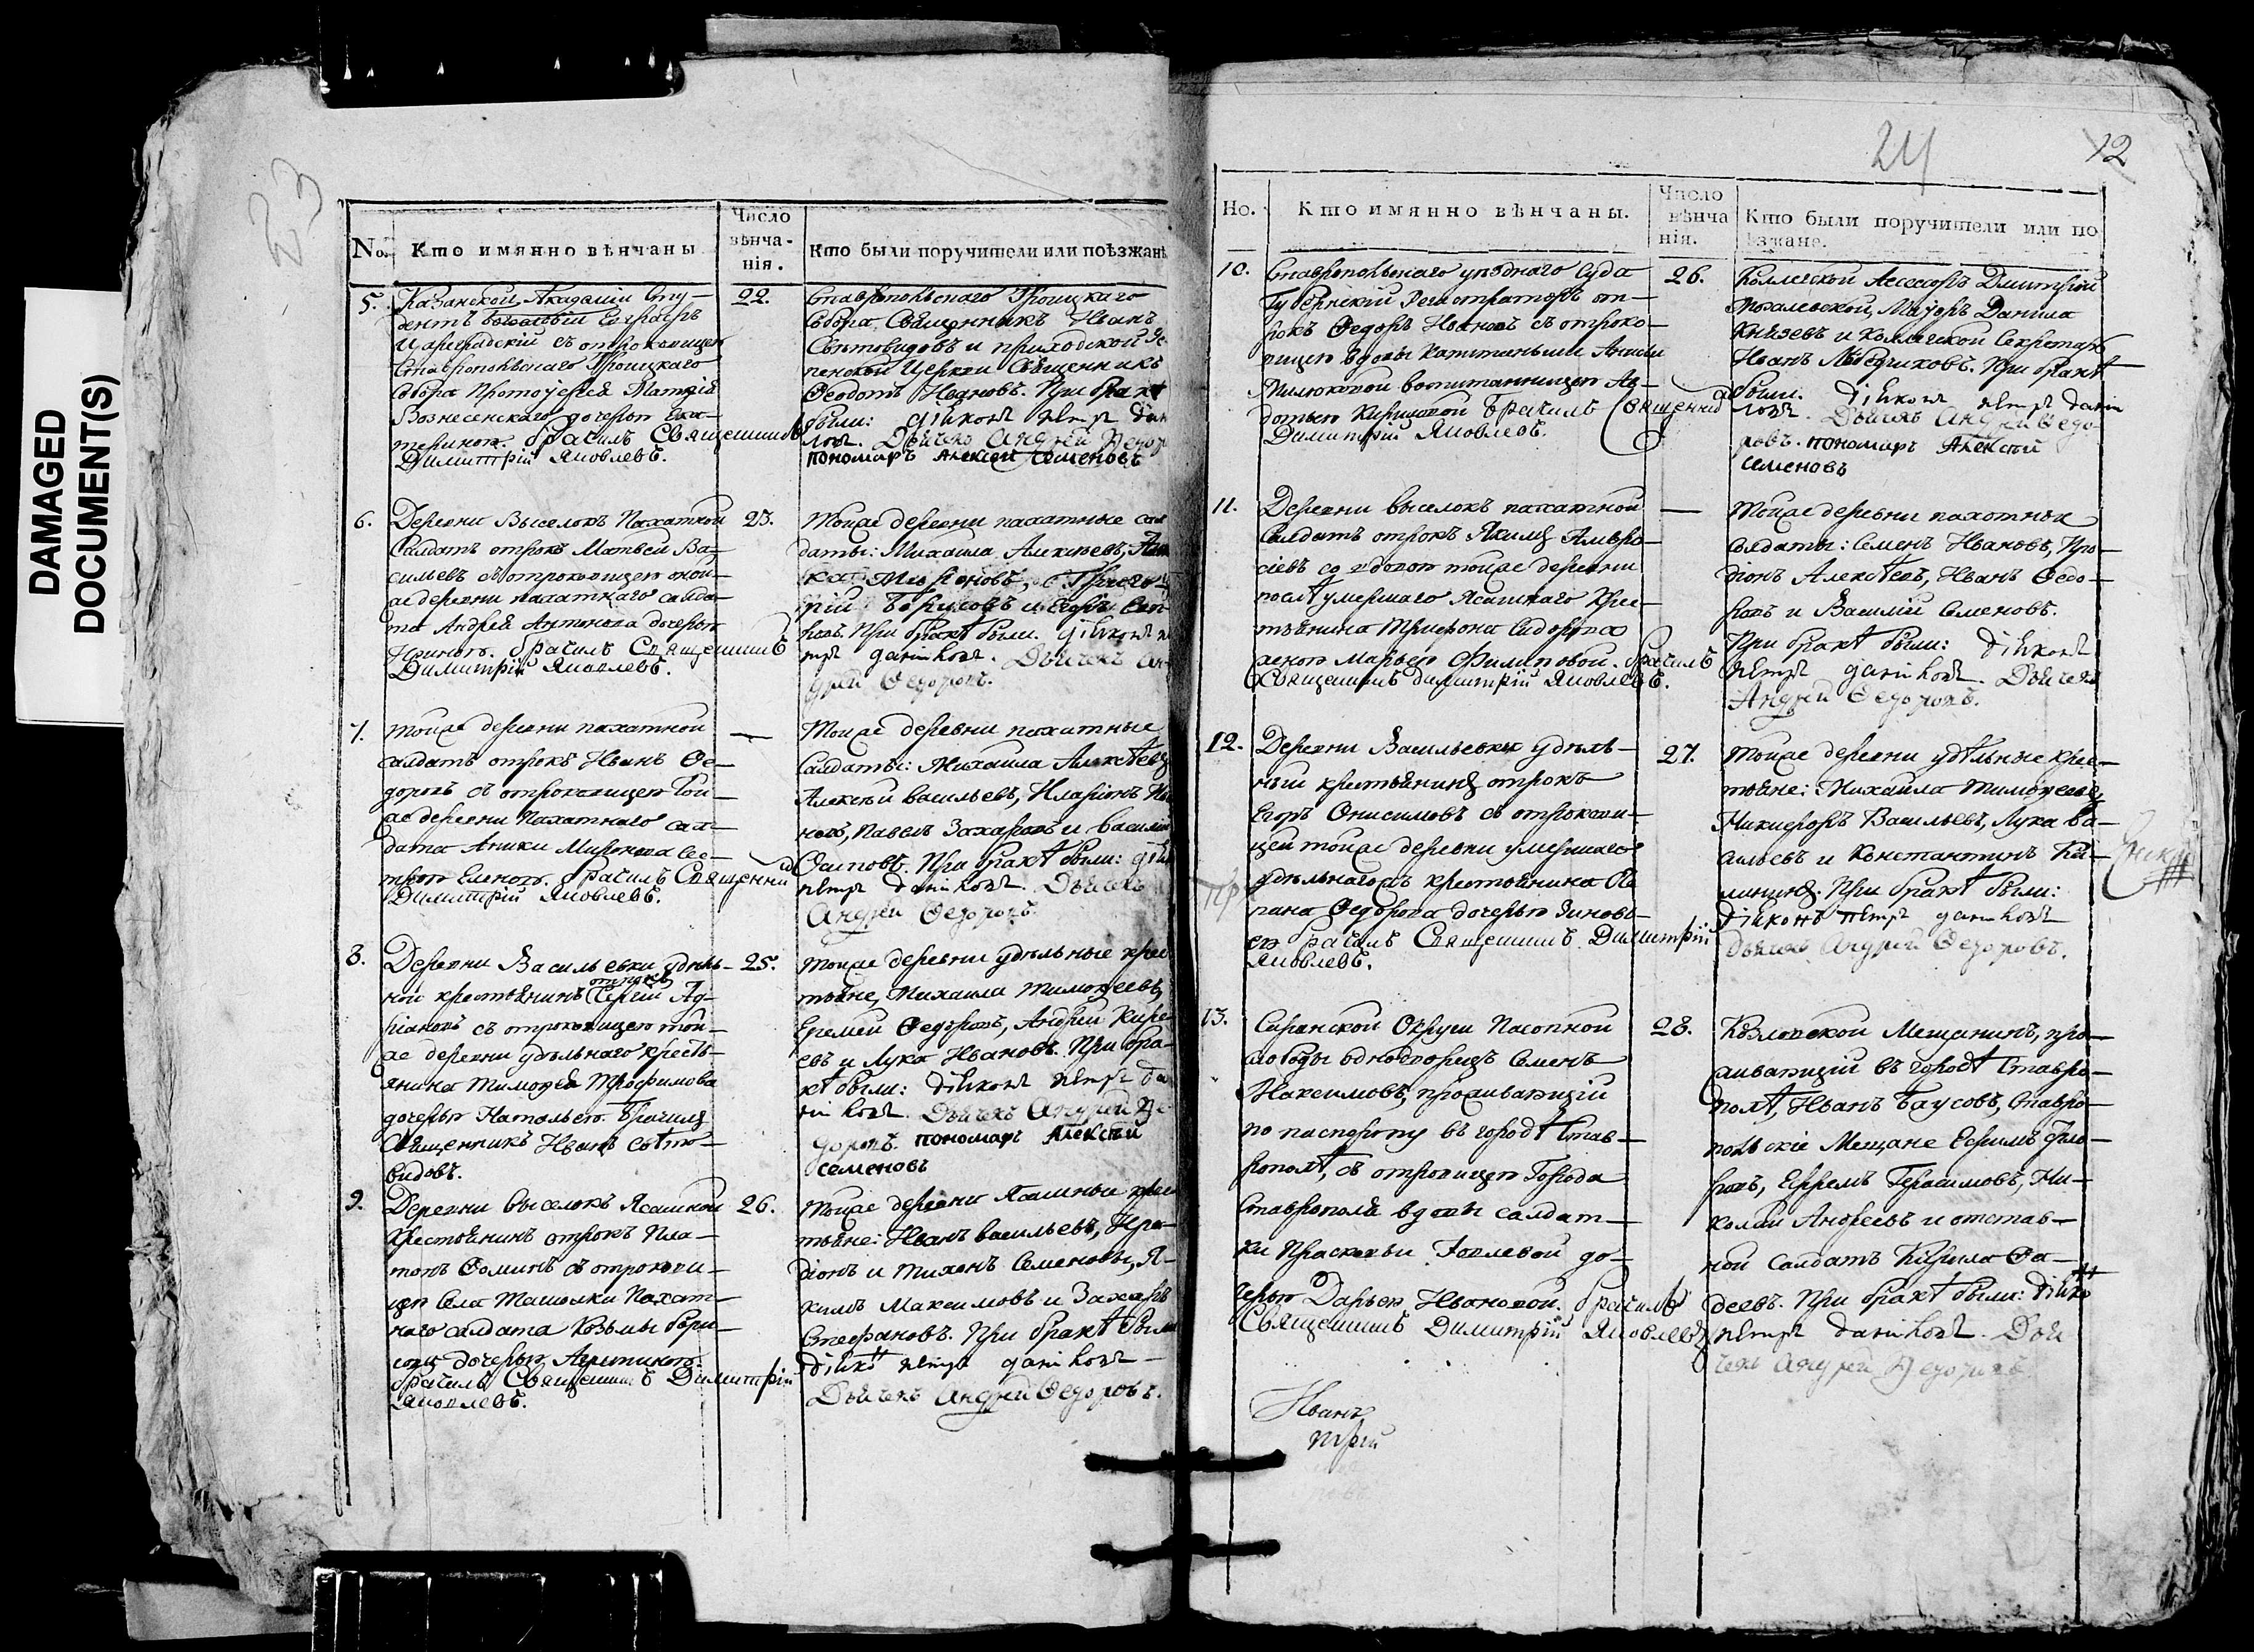 DAMAGED
DOCUMENT(S)
23
No. Кто имянно вѣнчаны
Число вѣнча-
нія.
Кто были поручители или поѣзжанѣ
5. Казанской Академіи Сту-
дентъ богословіи
Царевскій съ отроковицею
Ставропольскаго Троицкаго
Собора Протоіерея Матѳія
Вознесенскаго дочерью Ека-
териною. Брачилъ Священникъ
Димитрій Яковлевъ.
22.
Ставропольскаго Троицкаго
Собора Священникъ Иванъ
Свѣтовидовъ и приходской
церкви Священникъ
Ѳеодотъ Ивановъ. При бракѣ
были: діякон петр дани
лов. Дьячекъ Андрей Ѳедор
пономарь Алексей Семеновъ
6. Деревни Выселокъ Пахатной
Салдатъ отрокъ Матвей Ва-
сильевъ съ отроковицею оной-
же деревни пахатнаго салда-
та Андрея Антонова дочерью
Ириною. брачилъ Священникъ
Димитрій Яковлевъ.
23.
Тойже деревни пахатные сал
даты: Михаила Алексѣевъ,
Мироновъ, Григо-
рій Борисовъ и Егоръ
При бракѣ были. діякон пе
тръ данилов. Дьячекъ Ан-
дрей Ѳедоровъ.
7. Тойже деревни пахатной
салдатъ отрокъ Иванъ Ѳе-
доровъ съ отроковицею той-
же деревни Пахатнаго сал-
дата Аники Миронова сес-
трою Еленою. брачилъ Священни
Димитрій Яковлевъ.
—
Тойже деревни пахатные
Салдаты: Михаила Алексѣевъ
Алексѣй Васильевъ, Иларіонъ Ива
новъ, Павелъ Захаровъ и Василій
Осиповъ. При бракѣ были: дія
петр данилов. Дьячекъ
Андрей Ѳедоровъ.
8. Деревни Васильевки удѣль-
ной крестьянинъ отрокъ Сергій Ад-
ріановъ съ отроковицею той-
же деревни удѣльнаго кресть-
янина Тимоѳея Трофимова
дочерью Натальею. Брачилъ
Священникъ Иванъ Свѣто-
видовъ.
25.
Тойже деревни удѣльные крес
тьяне, Михаила Тимоѳеевъ,
Еремей Ѳедоровъ, Андрей Кире
евъ и Лука Ивановъ. При бра-
кѣ были: діякон петр да
нилов. Дьячекъ Андрей Ѳе-
доровъ. пономарь Алексѣй
семеновъ
9. Деревни выселокъ Ясашной
Крестьянинъ отрокъ Пла-
тонъ Ѳоминъ съ отрокови-
цею Села Ташолки Пахат-
наго салдата Козьмы Бори-
сова дочерью
брачилъ Священникъ Димитрій
Яковлевъ.
26.
Тойже деревни Ясашные крес
тьяне: Иванъ Васильевъ, Иро-
діонъ и Тихонъ Семеновы, Я-
кимъ Максимовъ и Захаръ
Стефановъ. При бракѣ были
діяко петр данилов
Дьячекъ Андрей Ѳедоровъ.
24
12
Но. Кто имянно вѣнчаны.
Число
вѣнча
нія.
Кто были поручители или по
ѣзжане.
10. Ставропольскаго уѣзднаго Суда
Губернскій Регистраторъ от-
рокъ Ѳедоръ Ивановъ съ отроко-
вицею вдовы Капитанши Анисьи
Милюковой воспитанницею Ав-
дотьею Кириловой Брачилъ Священни
Димитрій Яковлевъ.
26.
Коллежской Асессоръ Дмитрій
Маіоръ Данила
Князевъ и Коллежской Секретарь
Иванъ Лебедчиковъ. При бракѣ
были: діякон петр дани
лов. Дьячекъ Андрей Ѳедо-
ровъ. пономарь Алексѣй
семеновъ
11. Деревни выселокъ пахатной
Салдатъ отрокъ Якимъ Амвро-
сіевъ со вдовою тойже деревни
послѣ умершаго Ясашнаго Крес-
тьянина Трифона Сидорова
женою Марьею Филиповой. брачилъ
Священникъ Димитрій Яковлевъ.
—
Тойже деревни пахотныя
Солдаты: Семенъ Ивановъ, Иро-
діонъ Алексѣевъ, Иванъ Ѳедо-
ровъ и Василій Семеновъ.
При бракѣ были: діякон
петр данилов. Дьячекъ
Андрей Ѳедоровъ.
12. Деревни Васильевки удѣль-
ный крестьянинъ отрокъ
Егоръ Онисимовъ съ отрокови-
цей тойже деревни умершаго
удѣльнагожъ крестьянина
Ѳедорова дочерью Зиновь-
ею брачилъ Священникъ Димитрій
Яковлевъ.
27.
Тойже деревни удѣльные крес-
тьяне: Михаила Тимоѳеевъ,
Никифоръ Васильевъ, Лука Ва-
сильевъ и Константинъ Ка-
лининъ. При бракѣ были:
діяконъ петр данилов
Дьячекъ Андрей Ѳедоровъ.
13. Саранской Округи Посопной
слободы однодворецъ Семенъ
Максимовъ, проживающій
по паспорту въ городѣ Став-
рополѣ, съ отроковицею Города
Ставрополя вдовы салдат-
ки Прасковьи дο-
черью Дарьею Ивановой. брачилъ
Священникъ Димитрій Яковлевъ
28.
Козловской Мещанинъ, про-
живающій въ городѣ Ставро-
полѣ, Иванъ Баусовъ, Ставро-
польскіе Мещане Ефимъ Фло-
ровъ, Ефремъ Герасимовъ, Ни-
колай Андреевъ и отстав-
ной Салдатъ Кирила Ѳа-
деевъ. При бракѣ были: діяко
петр данилов. Дья
чекъ Андрей Ѳедоровъ.
Иванъ